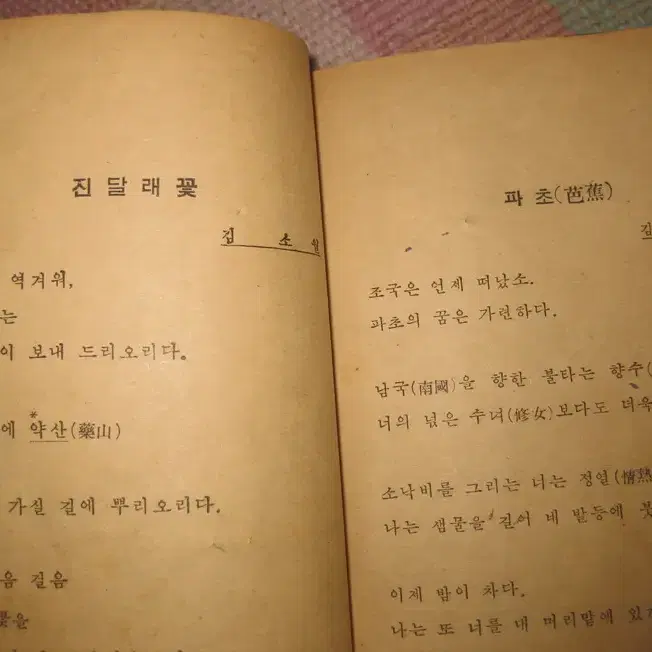 진달래꽃
김 소월
역겨워,
는
이 보내 드리오리다.
*
에 약산(藥山)
가실 길에 뿌리오리다.
음 걸음
꽃을
파 초(芭蕉)
김
조국은 언제 떠났소.
파초의 꿈은 가련하다.
남국(南國)을 향한 불타는 향수(
너의 넋은 수녀(修女)보다도 더욱
소낙비를 그리는 너는 정열(情熱
나는 샘물을 길어 네 발등에 붓
이제 밤이 차다.
나는 또 너를 내 머리맡에 있게